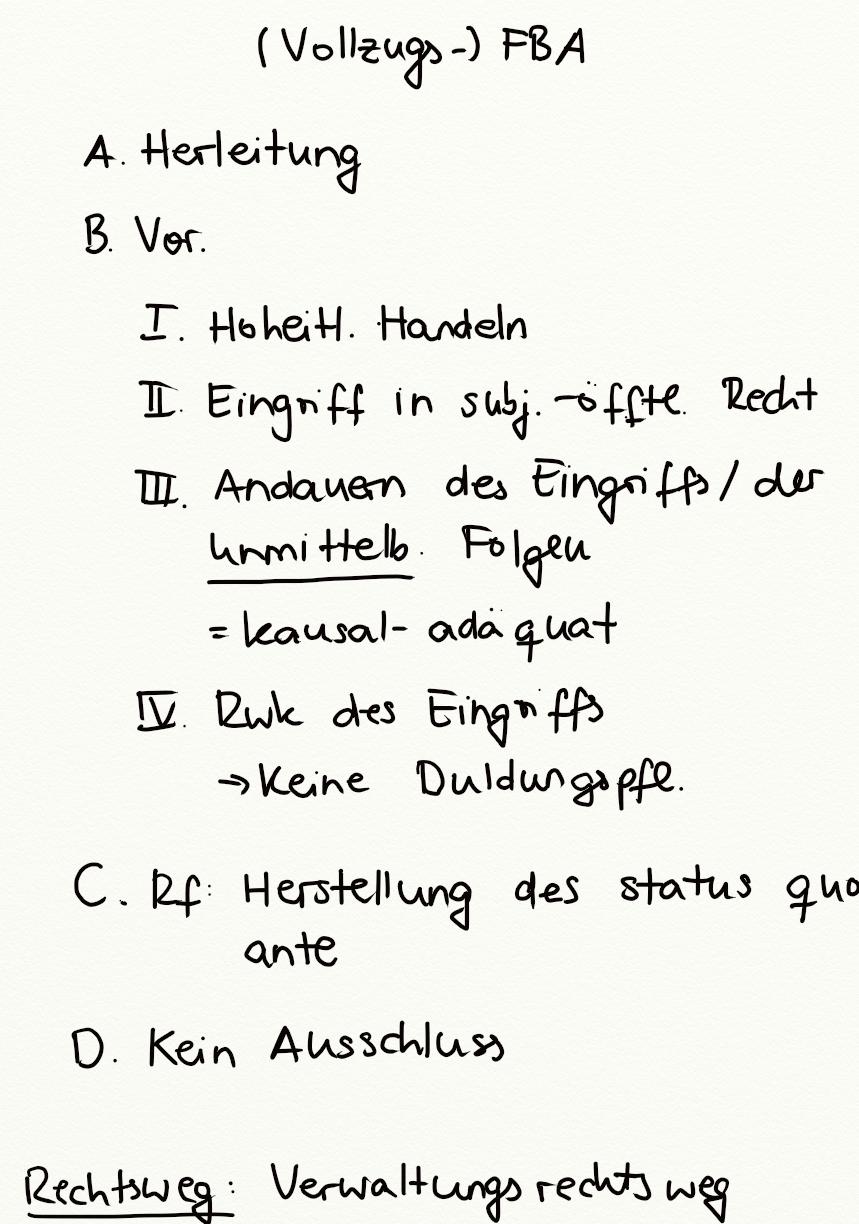 (Vollzugs-) FBA
A. Herleitung
B. Vor.
I. Hoheitl. Handeln
II. Eingriff in subj.-öfftl. Recht
III. Andauern des Eingriffs / der
unmittelb. Folgen
= kausal-adäquat
IV. Rwk des Eingriffs
→ Keine Duldungspfl.
C. Rf: Herstellung des status quo
ante
D. Kein Ausschluss
Rechtsweg: Verwaltungsrechtsweg